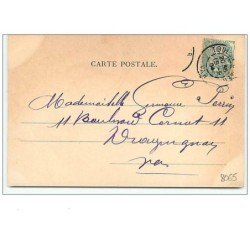 CARTE POSTALE.
Mademoiselle Germaine
11 Boulevard Carnot 11
Draguignan
Var
8055